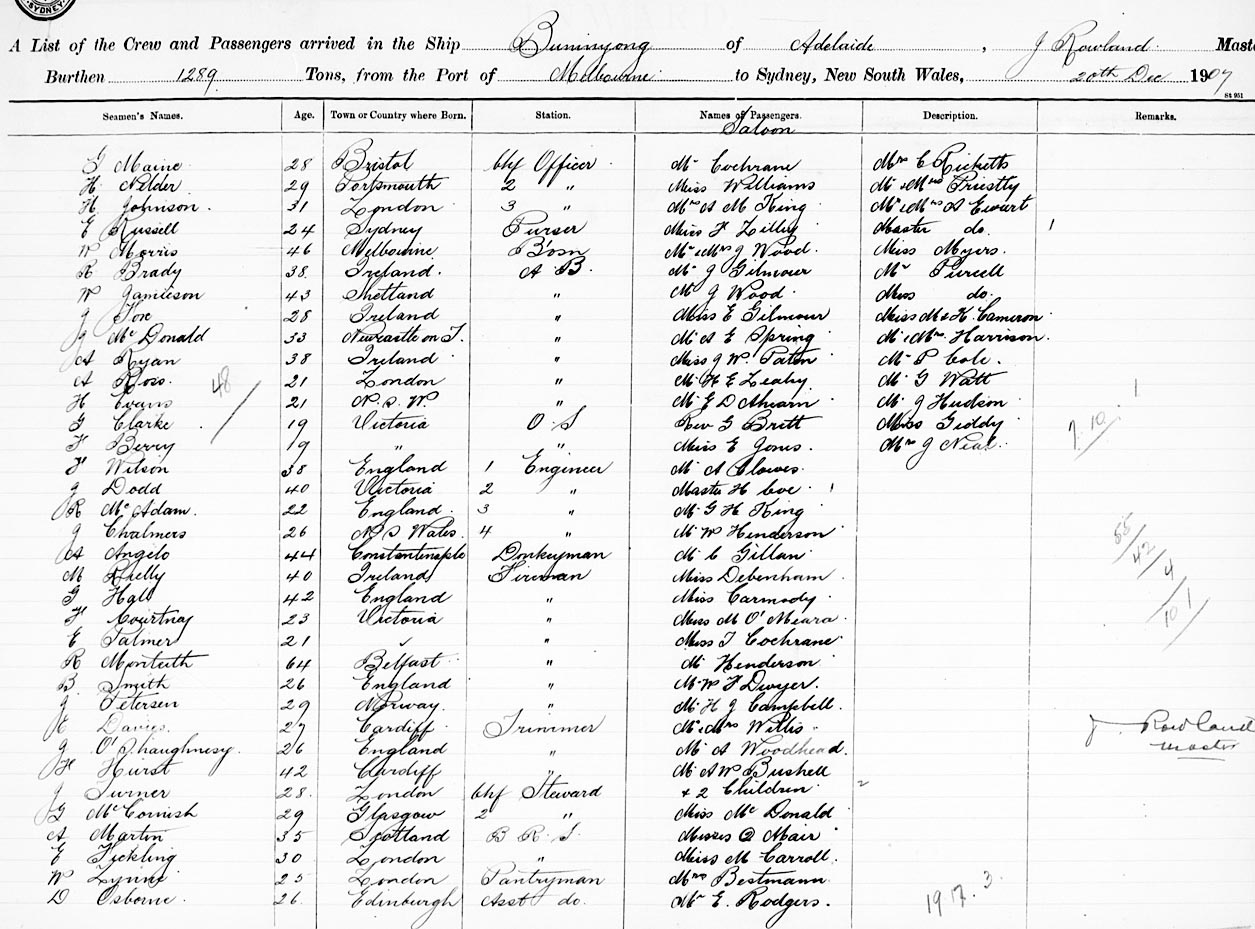 SYDNEY
A List of the Crew and Passengers arrived in the Ship Buninyong of Adelaide, J Rowland Maste
Burthen 1289 Tons, from the Port of Melbourne to Sydney, New South Wales, 20th Dec 1907
St 951
Seamen's Names. Age. Town or Country where Born. Station. Names of Passengers. Description. Remarks.
Saloon
G Maine 28 Bristol Chf Officer Mr Cochrane Mrs C Ricketts
H Nilder 29 Portsmouth 2 " Miss Williams Mr & Mrs Priestly
H Johnson. 31 London 3 " Mrs A M King Mr & Mrs A Ewart
E Russell 24 Sydney Purser Miss F Lilley Master do. 1
W Morris 46 Melbourne B'osn Mr & Mrs J Wood. Miss Myers.
R Brady 38. Ireland. A B. Mr J Gilmour Mr Purcell
W Jamieson 43 Shetland " Mr J Wood. Miss do.
J Fox 28 Ireland " Miss E Gilmour Miss M & K. Cameron
J McDonald 33 Newcastle on T. " Mr A E Spring Mr & Mrs Harrison.
A Ryan 38 Ireland " Miss J W. Paton Mr P Cole.
A Ross. 21 London " Mr H E Leahy Mr G Watt
48
H Evans 21 N. S. W " Mr E D Ahearn Mr J Hudson 1
G Clarke 19 Victoria O S Rev G Britt Miss Giddy 7.10
F Berry 19 " " Miss E Jones. Mrs J Neal.
F Wilson 38 England 1 Engineer Mr A Clowes.
J Dodd 40 Victoria 2 " Master H Coe. 1
R McAdam. 22 England 3 " Mr G H King
J Chalmers 26 N. S Wales. 4 " Mr W Henderson
55/42/4/101
A Angelo 44 Constantinople Donkeyman Mr C Gillan
M Reilly 40 Ireland Fireman Miss Debenham
G Hall 42 England " Miss Carmody.
F Courtnay 23 Victoria " Miss M O'Meara.
E Palmer 21 " " Miss T Cochrane
R Monteith 64 Belfast " Mr Henderson
B. Smith 26 England " Mr W F Dwyer.
J Petersen 29 Norway. " Mr H J Campbell.
C Davies. 27 Cardiff Trimmer Mr & Mrs Willis J Rowland
master
J O'Shaughnesy. 26 England " Mr A Woodhead.
H Hurst 42 Cardiff " Mr A W Bushell
J Turner 28. London Chf Steward + 2 Children 2
G McCornish 29 Glasgow 2 " Miss McDonald
A Martin 35 Scotland B R S. Misses 2 Mair
E Tickling 30 London " Miss M Carroll.
W Lynne 25 London Pantryman Mrs Bestmann
D Osborne. 26. Edinburgh Asst do. Mr E. Rodgers.
19 17. 3.